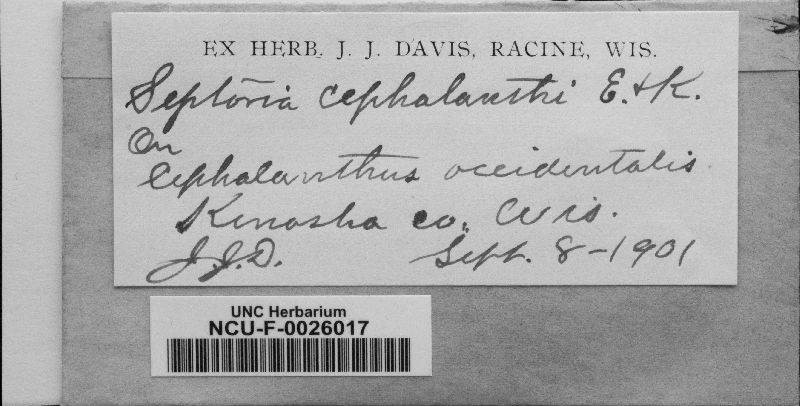 EX HERB. J. J. DAVIS, RACINE, WIS.
Septoria cephalanthi E. & K.
On
Cephalanthus occidentalis
Kenosha co., Wis.
J.J.D. Sept. 8-1901
UNC Herbarium
NCU-F-0026017